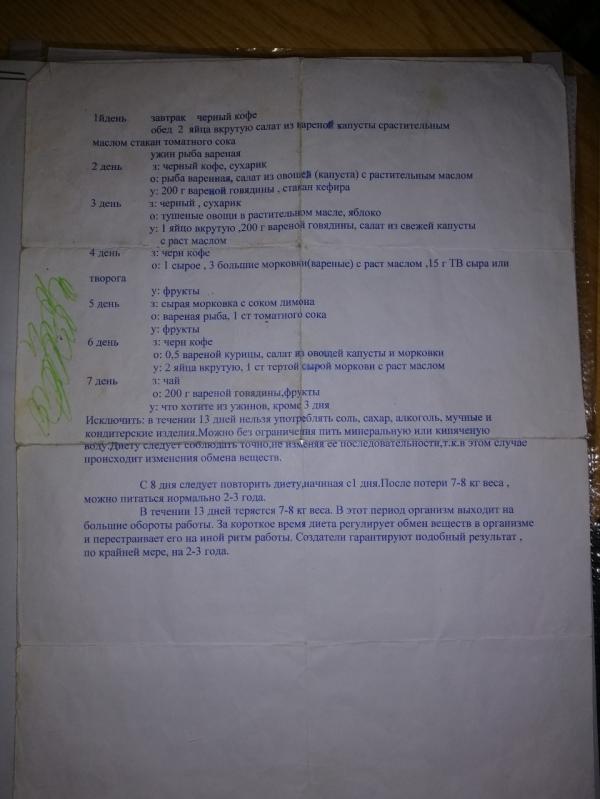 1йдень завтрак черный кофе
обед 2 яйца вкрутую салат из вареной капусты срастительным
маслом стакан томатного сока
ужин рыба вареная
2 день з: черный кофе, сухарик
о: рыба варенная, салат из овощей (капуста) с растительным маслом
у: 200 г вареной говядины , стакан кефира
3 день з: черный , сухарик
о: тушеные овощи в растительном масле, яблоко
у: 1 яйцо вкрутую ,200 г вареной говядины, салат из свежей капусты
с раст маслом
4 день з: черн кофе
о: 1 сырое , 3 большие морковки(вареные) с раст маслом ,15 г ТВ сыра или
творога
у: фрукты
5 день з: сырая морковка с соком лимона
о: вареная рыба, 1 ст томатного сока
у: фрукты
6 день з: черн кофе
о: 0,5 вареной курицы, салат из овощей капусты и морковки
у: 2 яйца вкрутую, 1 ст тертой сырой моркови с раст маслом
7 день з: чай
о: 200 г вареной говядины,фрукты
у: что хотите из ужинов, кроме 3 дня
Исключить: в течении 13 дней нельзя употреблять соль, сахар, алкоголь, мучные и
кондитерские изделия.Можно без ограничения пить минеральную или кипяченую
воду.Диету следует соблюдать точно,не изменяя ее последовательности,т.к.в этом случае
происходит изменения обмена веществ.
С 8 дня следует повторить диету,начиная с1 дня.После потери 7-8 кг веса ,
можно питаться нормально 2-3 года.
В течении 13 дней теряется 7-8 кг веса. В этот период организм выходит на
большие обороты работы. За короткое время диета регулирует обмен веществ в организме
и перестраивает его на иной ритм работы. Создатели гарантируют подобный результат ,
по крайней мере, на 2-3 года.